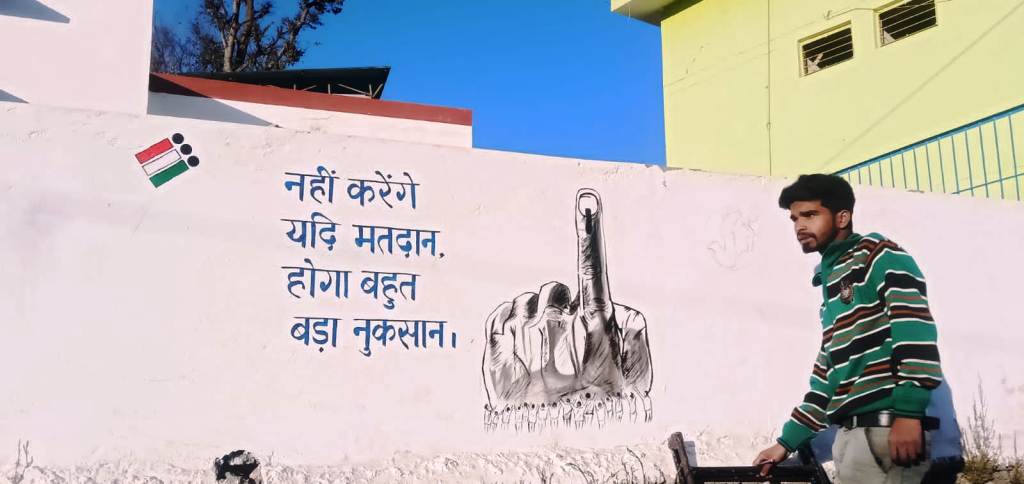 नहीं करेंगे
यदि मतदान,
होगा बहुत
बड़ा नुकसान।